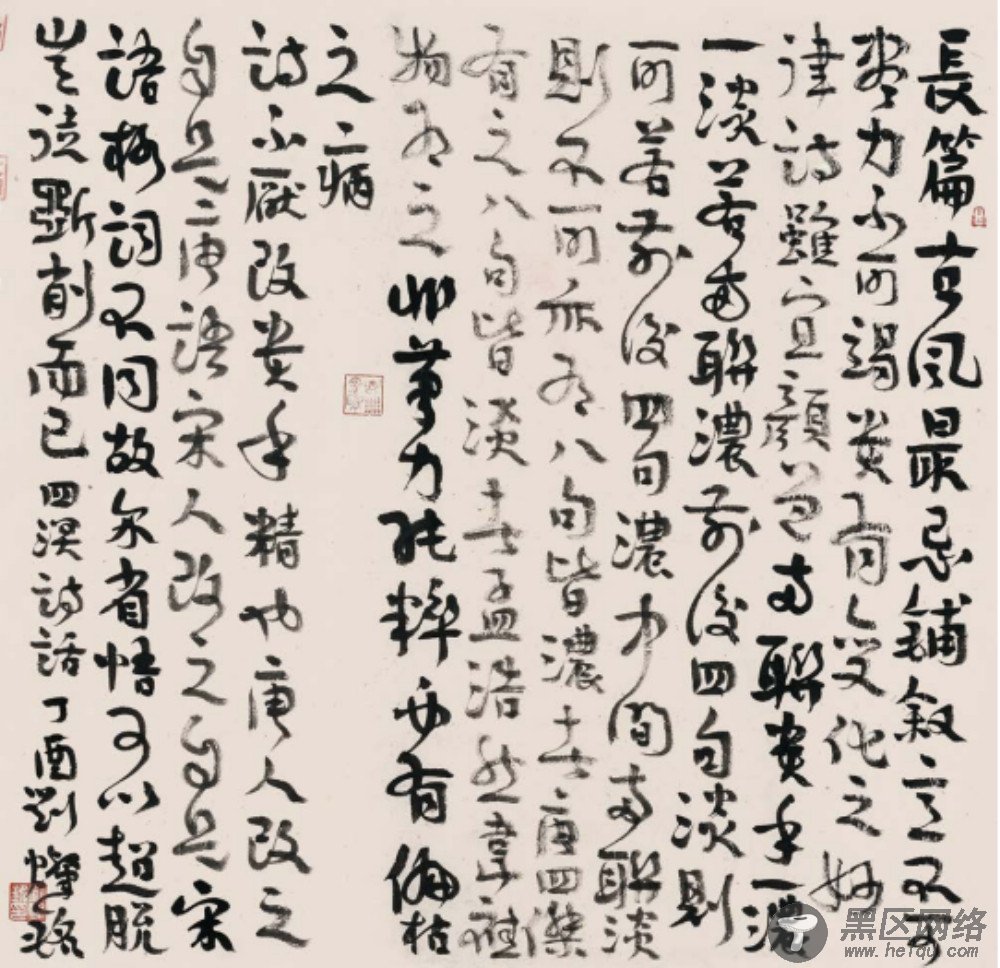 長篇古風最忌鋪敘意不可
盡力不可竭貴有變化之妙
律詩雖宜顏色兩聯貴乎一濃
一淡若兩聯濃前後四句淡則
可若前後四句濃中間兩聯淡
則不可亦有八句皆濃者唐四傑
有之八句皆淡者孟浩然韋應
物有之非筆力純粹必有偏枯
之病
詩不厭改貴乎精也唐人改之
自是唐語宋人改之自是宋
語格詞不同故爾省悟可以超脫
豈徒斲削而已 四溟詩話 丁酉劉燦銘
黑区网络
www.heiqu.com